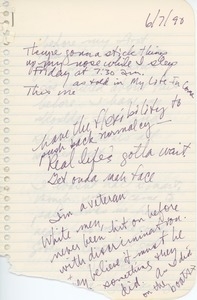 6/7/90
They're gonna stick things
up my nose while I sleep
Friday at 7:30 am,
as told in My Late In Comer
This one
have the flexibility to
push back normalcy
Real life's gotta wait
Get outta mah face
I'm a veteran
White men,
never been hit on before
with discrimination.
believe it must be
something they
did,